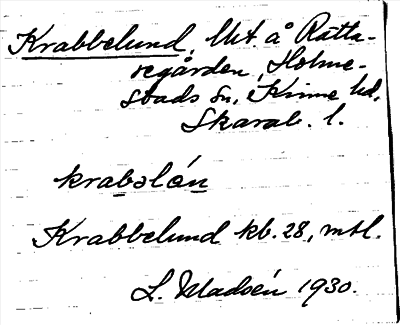 Krabbelund, lht. å Ratta-
regården, Holme-
stads sn, Kinne hd,
Skarab. l.
krabəlón
Krabbelund kb. 28, mtl.
L. Madsén 1930.